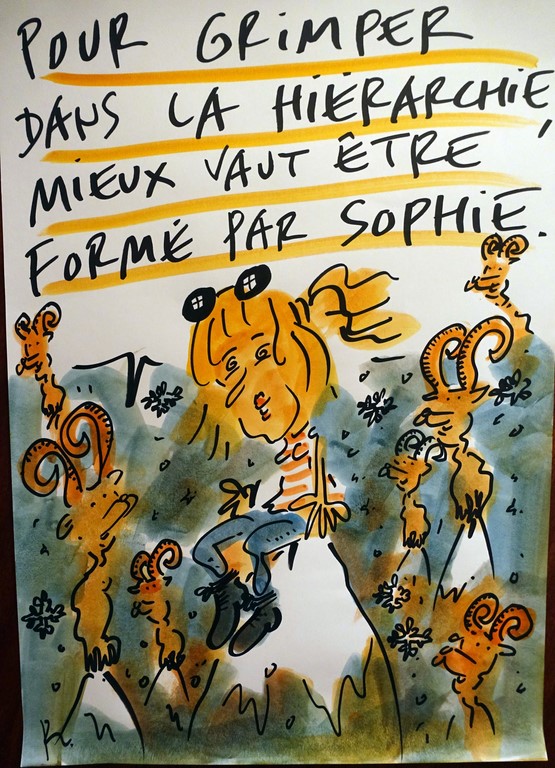 POUR GRIMPER
DANS LA HIÉRARCHIE,
MIEUX VAUT ÊTRE
FORMÉ PAR SOPHIE.